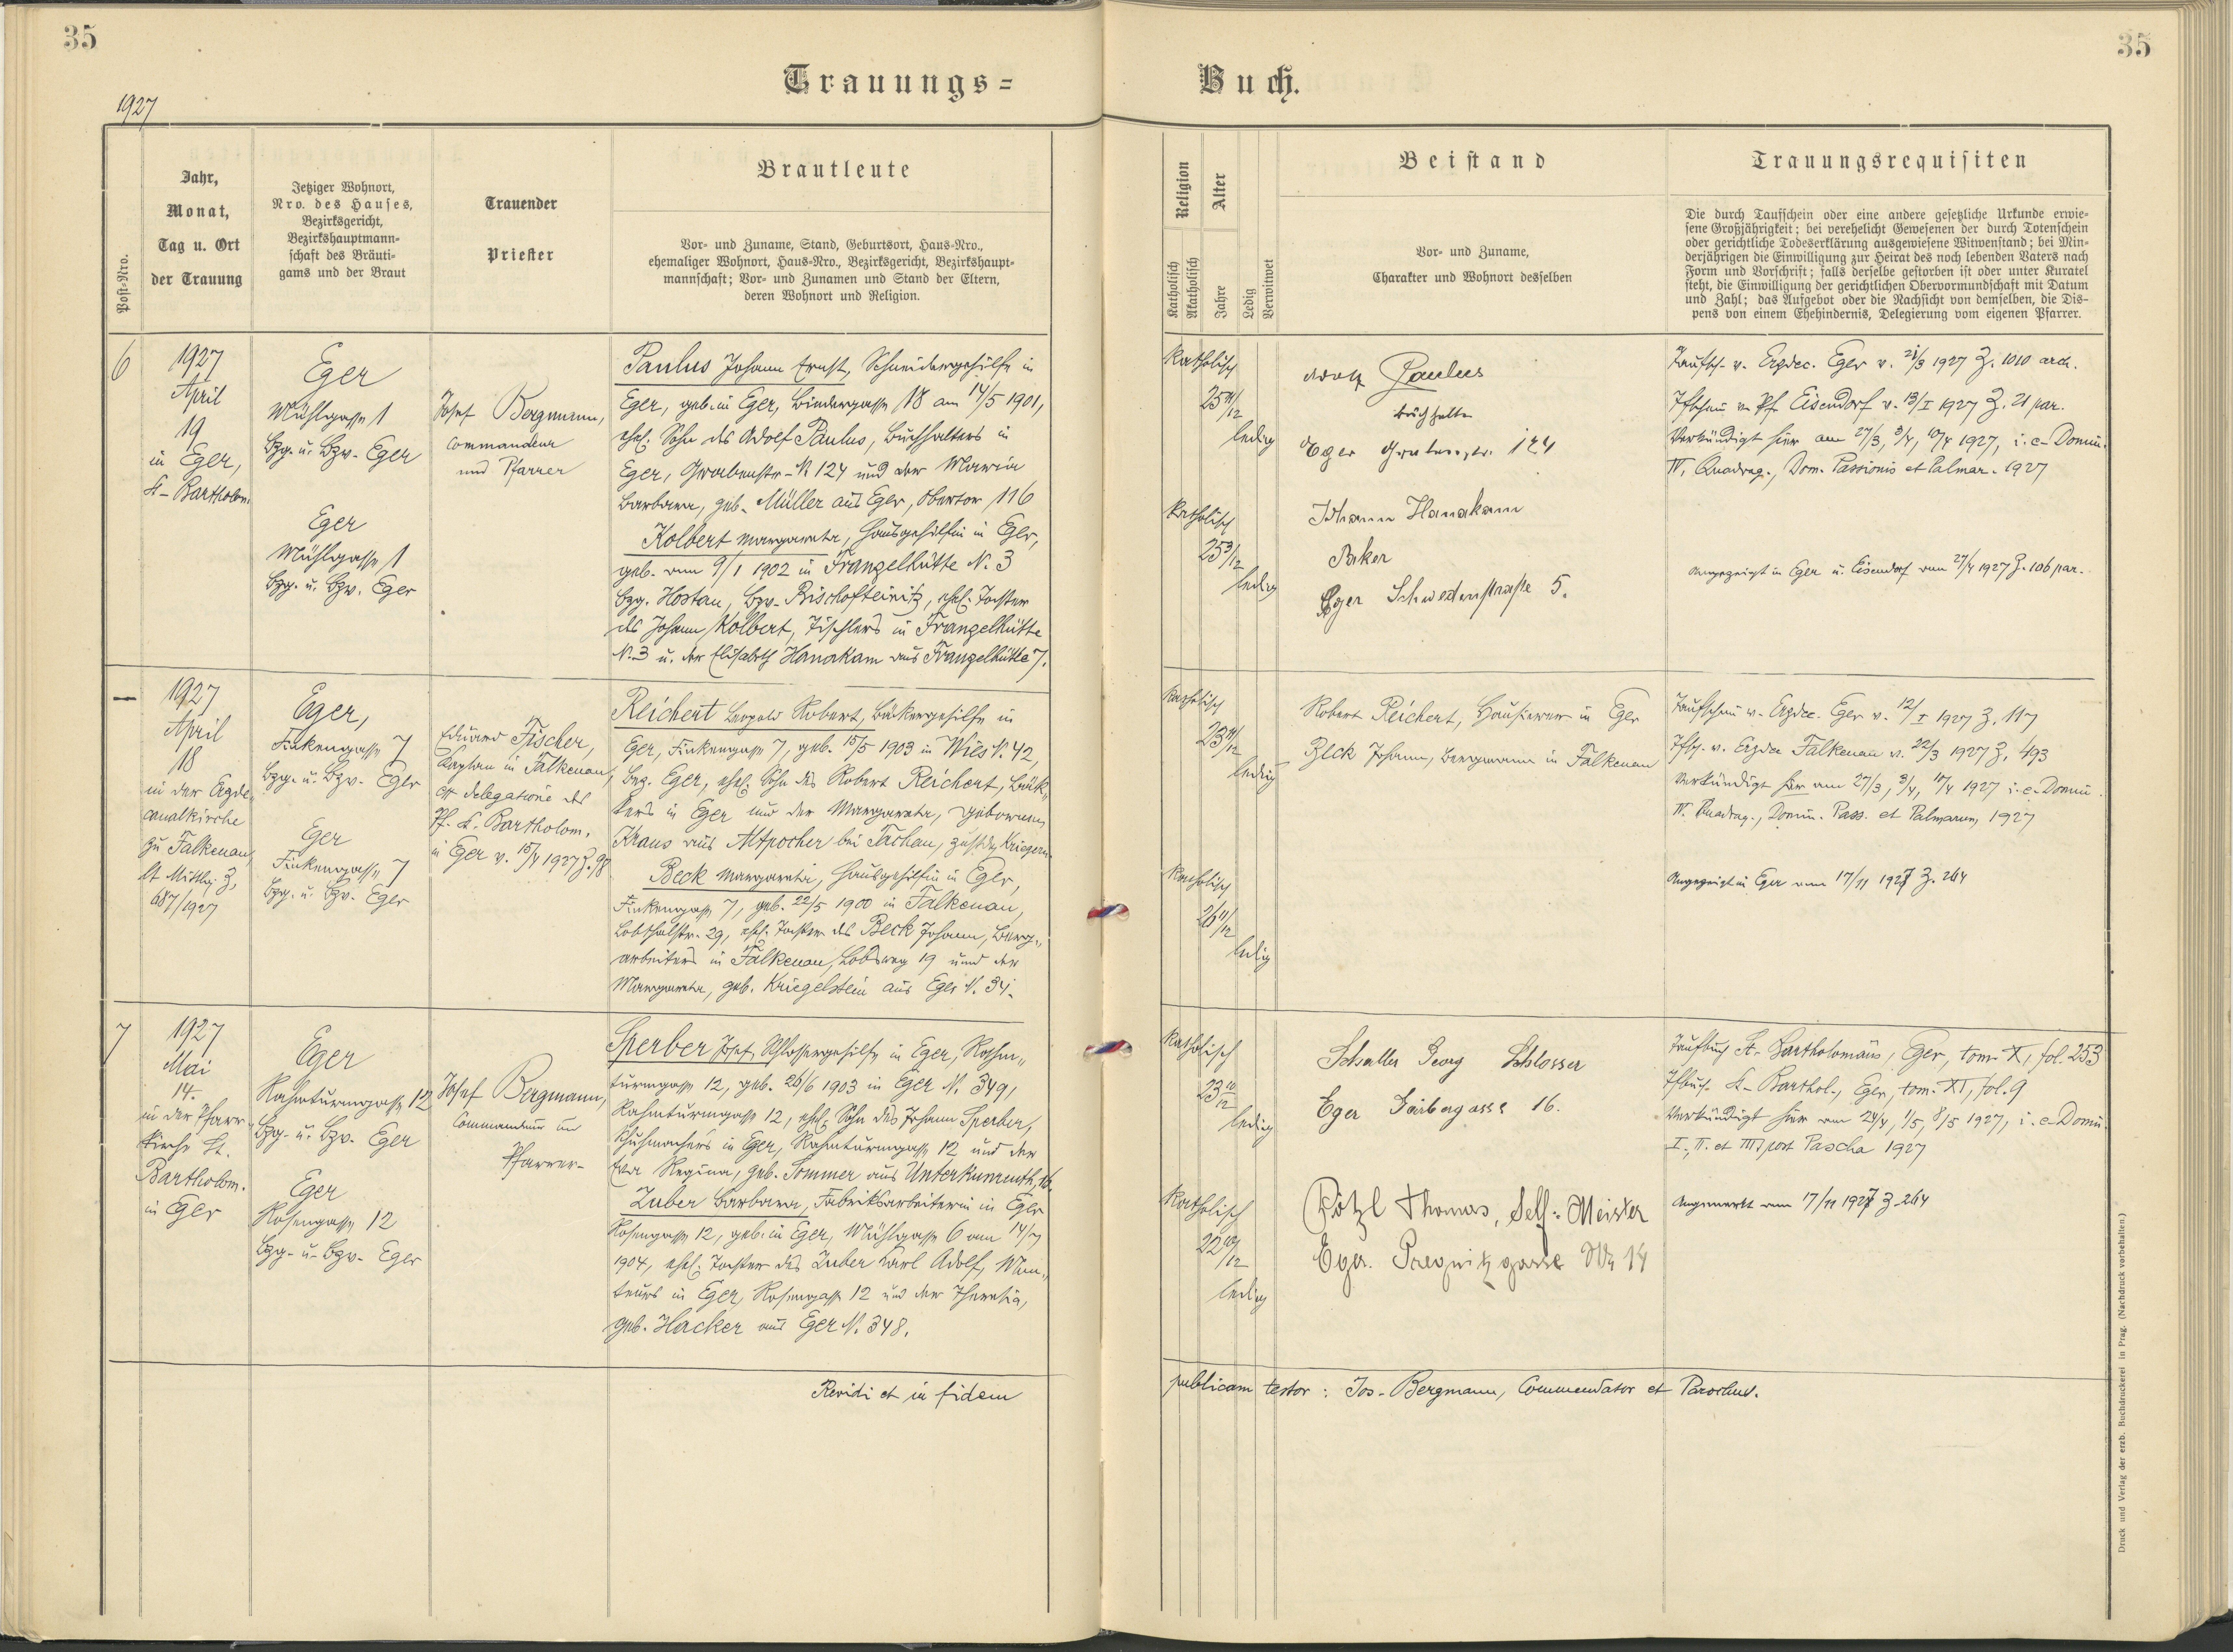 35
35
Trauungs=
Buch.
1927
Post=Nro.
Jahr,
Monat,
Tag u. Ort
der Trauung
Jetziger Wohnort,
Nro. des Hauses,
Bezirksgericht,
Bezirkshauptmann=
schaft des Bräuti=
gams und der Braut
Trauender
Priester
Brautleute
Vor= und Zuname, Stand, Geburtsort, Haus=Nro.,
ehemaliger Wohnort, Haus=Nro., Bezirksgericht, Bezirkshaupt=
mannschaft; Vor= und Zunamen und Stand der Eltern,
deren Wohnort und Religion.
Religion
Katholisch
Akatholisch
Alter
Jahre
Ledig
Verwitwet
Beistand
Vor= und Zuname,
Charakter und Wohnort desselben
Trauungsrequisiten
Die durch Taufschein oder eine andere gesetzliche Urkunde erwie=
sene Großjährigkeit; bei verehelicht Gewesenen der durch Totenschein
oder gerichtliche Todeserklärung ausgewiesene Witwenstand; bei Min=
derjährigen die Einwilligung zur Heirat des noch lebenden Vaters nach
Form und Vorschrift; falls derselbe gestorben ist oder unter Kuratel
steht, die Einwilligung der gerichtlichen Obervormundschaft mit Datum
und Zahl; das Aufgebot oder die Nachsicht von demselben, die Dis=
pens von einem Ehehindernis, Delegierung vom eigenen Pfarrer.
6
1927
April
19
in Eger,
St. Bartholom.
Eger
Mühlgasse 1
Bzg. u. Bzv. Eger
Eger
Mühlgasse 1
Bzg. u. Bzv. Eger
Josef Bergmann,
Commandeur
und Pfarrer
Paulus Johann Ernst, Schneidergehilfe in
Eger, geb. in Eger, Bindergasse 18 am 14/5 1901,
ehel. Sohn des Adolf Paulus, Buchhalters in
Eger, Grabenstr. N. 124 und der Maria
Barbara, geb. Müller aus Eger, Obertor 116
Kolbert Margareta, Hausgehilfin in Eger,
geb. am 9/1 1902 in Franzelhütte N. 3
Bzg. Hostau, Bzv. Bischofteinitz, ehel. Tochter
des Johann Kolbert, Tischlers in Franzelhütte
N. 3 u. der Elisabeth Hanakam aus Franzelhütte 7.
Katholisch
25 11/12
ledig
Katholisch
25 3/12
ledig
Adolf Paulus
Buchhalter
Eger Grabenstr. 124
Johann Hanakam
Eger Schwedenstraße 5.
Taufsch. v. Erzdec. Eger v. 21/3 1927 Z. 1010 arch.
Tfschein v. Pf. Eisendorf v. 13/I 1927 Z. 21 par.
Verkündigt hier am 27/3, 3/4, 10/4 1927, i. e. Domin.
IV. Quadrag., Dom. Passionis et Palmar. 1927
Angezeigt in Eger u. Eisendorf am 27/4 1927 Z. 106 par.
—
1927
April
18
in der Erzde-
canalkirche
zu Falkenau,
lt. Mittlg. Z.
687/1927
Eger,
Finkengasse 7
Bzg. u. Bzv. Eger
Eger
Finkengasse 7
Bzg. u. Bzv. Eger
Eduard Fischer,
Kaplan in Falkenau,
ex delegatione des
Pf. St. Bartholom.
in Eger v. 15/4 1927 Z. 98
Reichert Leopold Robert, Bäckergehilfe in
Eger, Finkengasse 7, geb. 15/5 1903 in Wies N. 42,
Bez. Eger, ehel. Sohn des Robert Reichert, Bäk„
kers in Eger und der Margareta, geborenen
Kraus aus Altpocher bei Tachau,
Beck Margareta, Hausgehilfin in Eger,
Finkengasse 7, geb. 22/5 1900 in Falkenau,
Lobsthalstr. 29, ehel. Tochter des Beck Johann, Berg„
arbeiters in Falkenau, Lobsweg 19 und der
Margareta, geb. Kriegelstein aus Eger N. 34.
Katholisch
23 11/12
ledig
Katholisch
26 11/12
ledig
Robert Reichert, Hausierer in Eger
Beck Johann, Bergmann in Falkenau
Taufschein v. Erzdec. Eger v. 12/I 1927 Z. 117
Tfsch. v. Erzdec Falkenau v. 22/3 1927 Z. 493
Verkündigt hier am 27/3, 3/4, 10/4 1927 i. e. Domin.
IV. Quadrag., Domin. Pass. et Palmarum 1927
Angezeigt in Eger am 17/11 1927 Z. 264
7
1927
Mai
14.
in der Pfarr-
kirche St.
Bartholom.
in Eger
Eger
Rahmturmgasse 12
Bzg. u. Bzv. Eger
Eger
Rosengasse 12
Bzg. u. Bzv. Eger
Josef Bergmann,
Commandeur und
Pfarrer
Sperber Josef, Schlossergehilfe in Eger, Rahm„
turmgasse 12, geb. 26/6 1903 in Eger N. 349,
Rahmturmgasse 12, ehel. Sohn des Johann Sperber,
Schuhmachers in Eger, Rahmturmgasse 12 und der
Eva Regina, geb. Sommer aus Unterkunreuth, 16.
Zuber Barbara, Fabriksarbeiterin in Eger
Rosengasse 12, geb. in Eger, Mühlgasse 6 am 14/7
1904, ehel. Tochter des Zuber Karl Adolf, Mon„
teurs in Eger, Rosengasse 12 und der Theresia,
geb. Hacker aus Eger N. 348.
Katholisch
23 10/12
ledig
Katholisch
22 10/12
ledig
Schaller Georg Schlosser
Eger Gärbergasse 16.
Pötzl Thomas, Self: Meister
Eger. Pregnitzgasse No 14
Taufbuch St. Bartholomäus, Eger, tom. X, fol. 253
Tfbuch St. Barthol., Eger, tom. XI, fol. 9
Verkündigt hier am 24/4, 1/5, 8/5 1927, i. e. Domin.
I., II. et III. post Pascha 1927
Angemerkt am 17/11 1927 Z. 264
Revidi et in fidem
publicam testor: Jos. Bergmann, Commendator et Parochus.
Druck und Verlag der erzb. Buchdruckerei in Prag. (Nachdruck vorbehalten.)